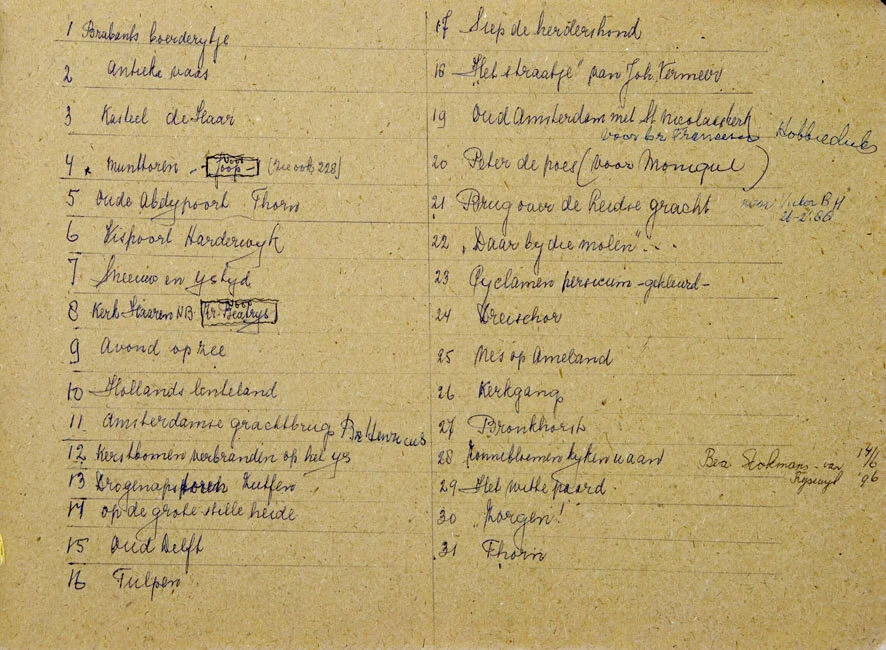 1 Brabants boerderytje
2 Antieke vaas
3 Kasteel de Haar
4 Munttoren - Voor Joop - (zie ook 228)
5 Oude Abdypoort Thorn
6 Vispoort Harderwyk
7 Sneeuw en ystyd
8 Kerk Haaren NB Voor Zr. Beatrys
9 Avond op zee
10 Hollands lenteland
11 Amsterdamse grachtbrug Br. Henricus
12 Kerstbomen verbranden op het ys
13 Drogenapstoren Zutfen
14 op de grote stille heide
15 Oud Delft
16 Tulpen
17 Siep de herdershond
18 "Het straatje" van Joh. Vermeer
19 Oud Amsterdam met St Nicolaaskerk
voor br Franciscus Hobbiedub
20 Peter de poes (voor Monique)
21 Brug over de Leidse gracht naar Victor B H
21-2-'66
22 "Daar by die molen"...
23 Cyclamen persicum -gekleurd-
24 Dreischor
25 Nes op Ameland
26 Kerkgang
27 Bronkhorst
28 Zonnebloemen kyken u aan Bea Stokmans - van Ryswyk 14/6 96
29 Het witte paard
30 "Zorgen!
31 Thorn